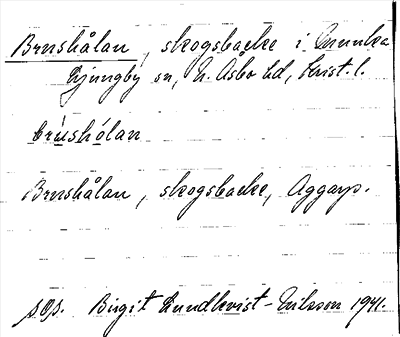 Brushålan, skogsbacke i Munka
Ljungby sn, N. Åsbo hd, Krist. l.
brúshólan
Brushålan, skogsbacke, Aggarp.
s.o.s. Birgit Lundkvist-Nilsson 1941.